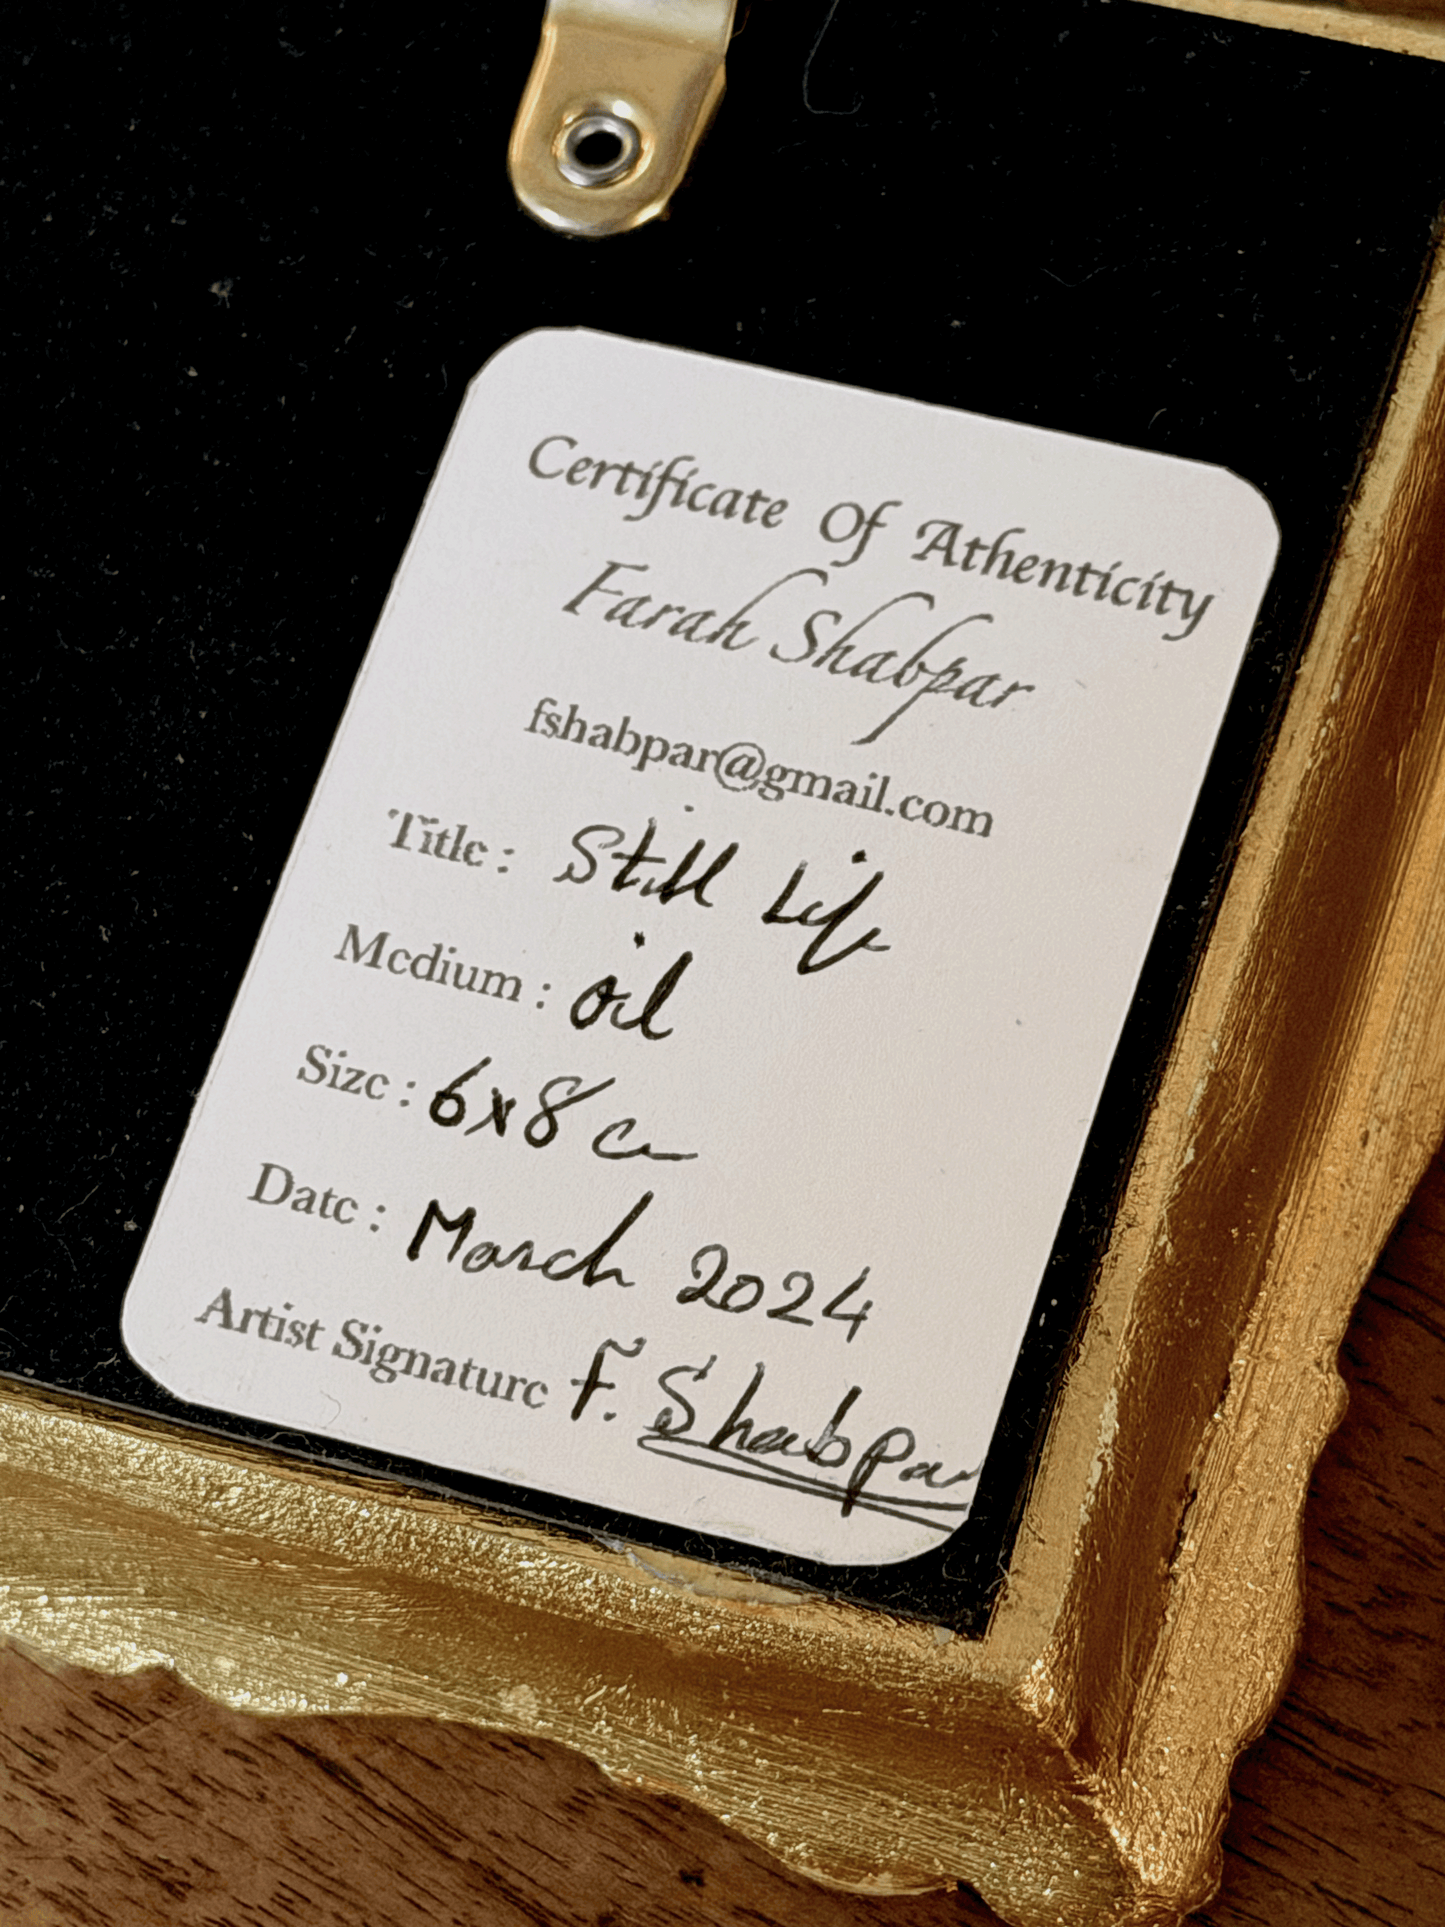 Certificate Of Athenticity
Farah Shabpar
fshabpar@gmail.com
Title : Still Life
Medium : oil
Size : 6x8 cm
Date : March 2024
Artist Signature F. Shabpar